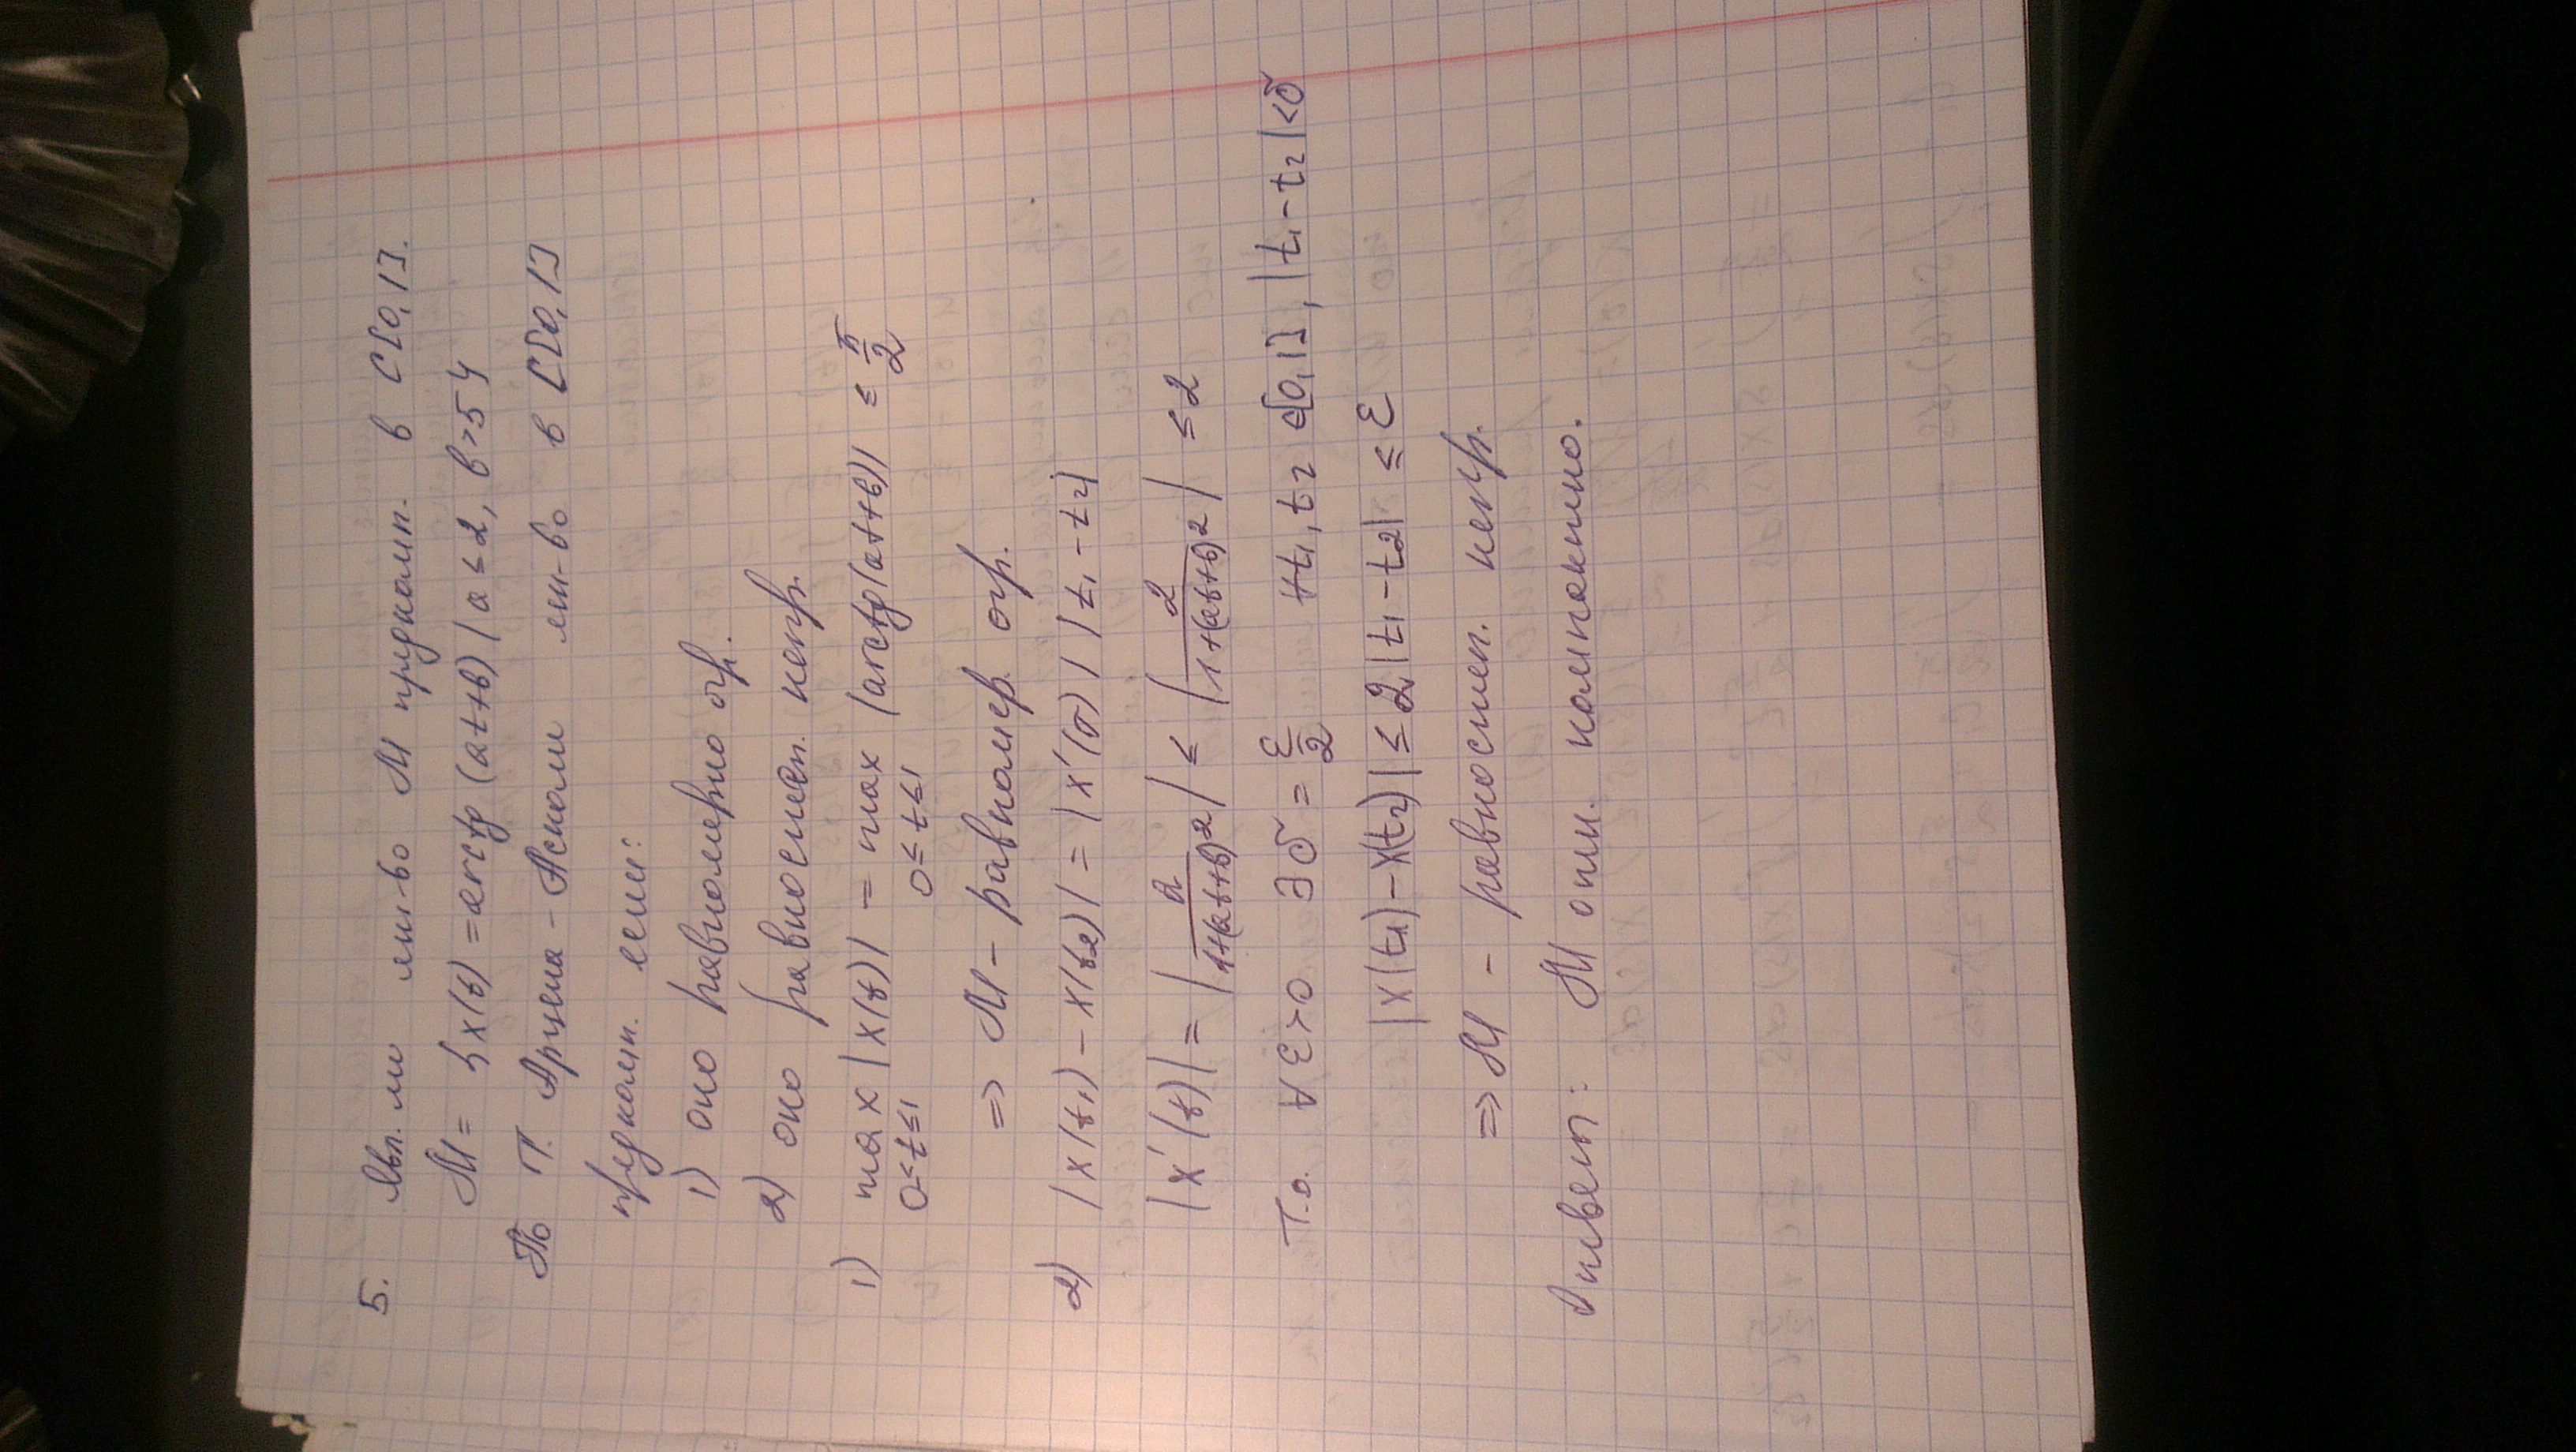 5. Явл. ли мн-во M предкомп. в C[0,1].
M = {x(t) = arctg (at+b) | a ≤ 2, b>5}
По Т. Арцела - Асколи мн-во в C[0,1]
предкомп. если:
1) оно равномерно огр.
2) оно равностеп. непр.
1) max |x(t)| = max |arctg(at+b)| ≤ π/2
0≤t≤1 0≤t≤1
=> M - равномер. огр.
2) |x(t₁) - x(t₂)| = |x'(σ)| |t₁ - t₂|
|x'(t)| = |a/(1+(at+b)²)| ≤ |2/(1+(at+b)²)| ≤ 2
Т.о. ∀ε>0 ∃δ = ε/2 ∀t₁, t₂ ∈[0,1], |t₁ - t₂|<δ
|x(t₁) - x(t₂)| ≤ 2|t₁ - t₂| ≤ ε
=> M - равностеп. непр.
Ответ: M отн. компактно.